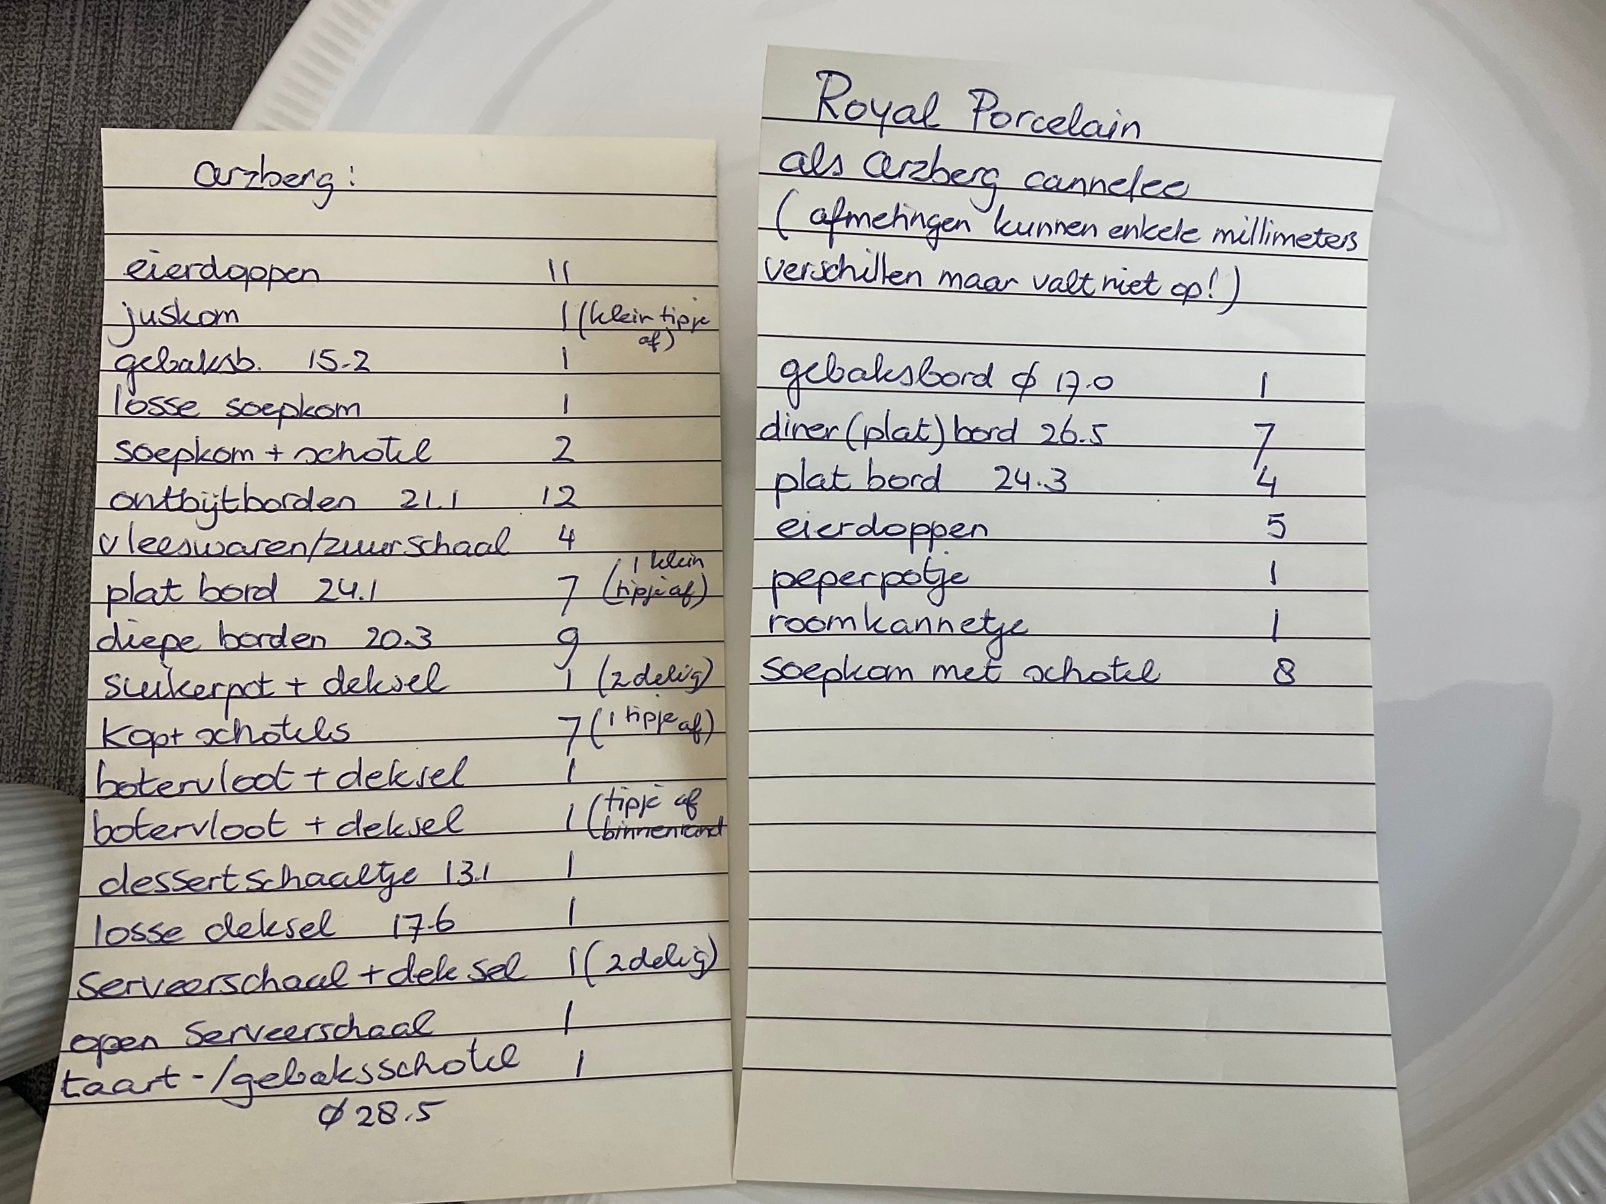 Arzberg:
eierdoppen 11
juskom 1 (klein tipje af)
gebaksb. 15.2 1
losse soepkom 1
soepkom + schotel 2
ontbijtborden 21.1 12
vleeswaren/zuurschaal 4
plat bord 24.1 7 (1 klein tipje af)
diepe borden 20.3 9
suikerpot + deksel 1 (2 delig)
kop+ schotels 7 (1 tipje af)
botervloot + deksel 1
botervloot + deksel 1 (tipje af binnenrand
dessertschaaltje 13.1 1
losse deksel 17.6 1
serveerschaal + deksel 1 (2 delig)
open serveerschaal 1
taart-/gebaksschotel 1
ø 28.5
Royal Porcelain
als Arzberg cannelee
(afmetingen kunnen enkele millimeters
verschillen maar valt niet op!)
gebaksbord ø 17.0 1
diner (plat) bord 26.5 7
plat bord 24.3 4
eierdoppen 5
peperpotje 1
roomkannetje 1
soepkom met schotel 8